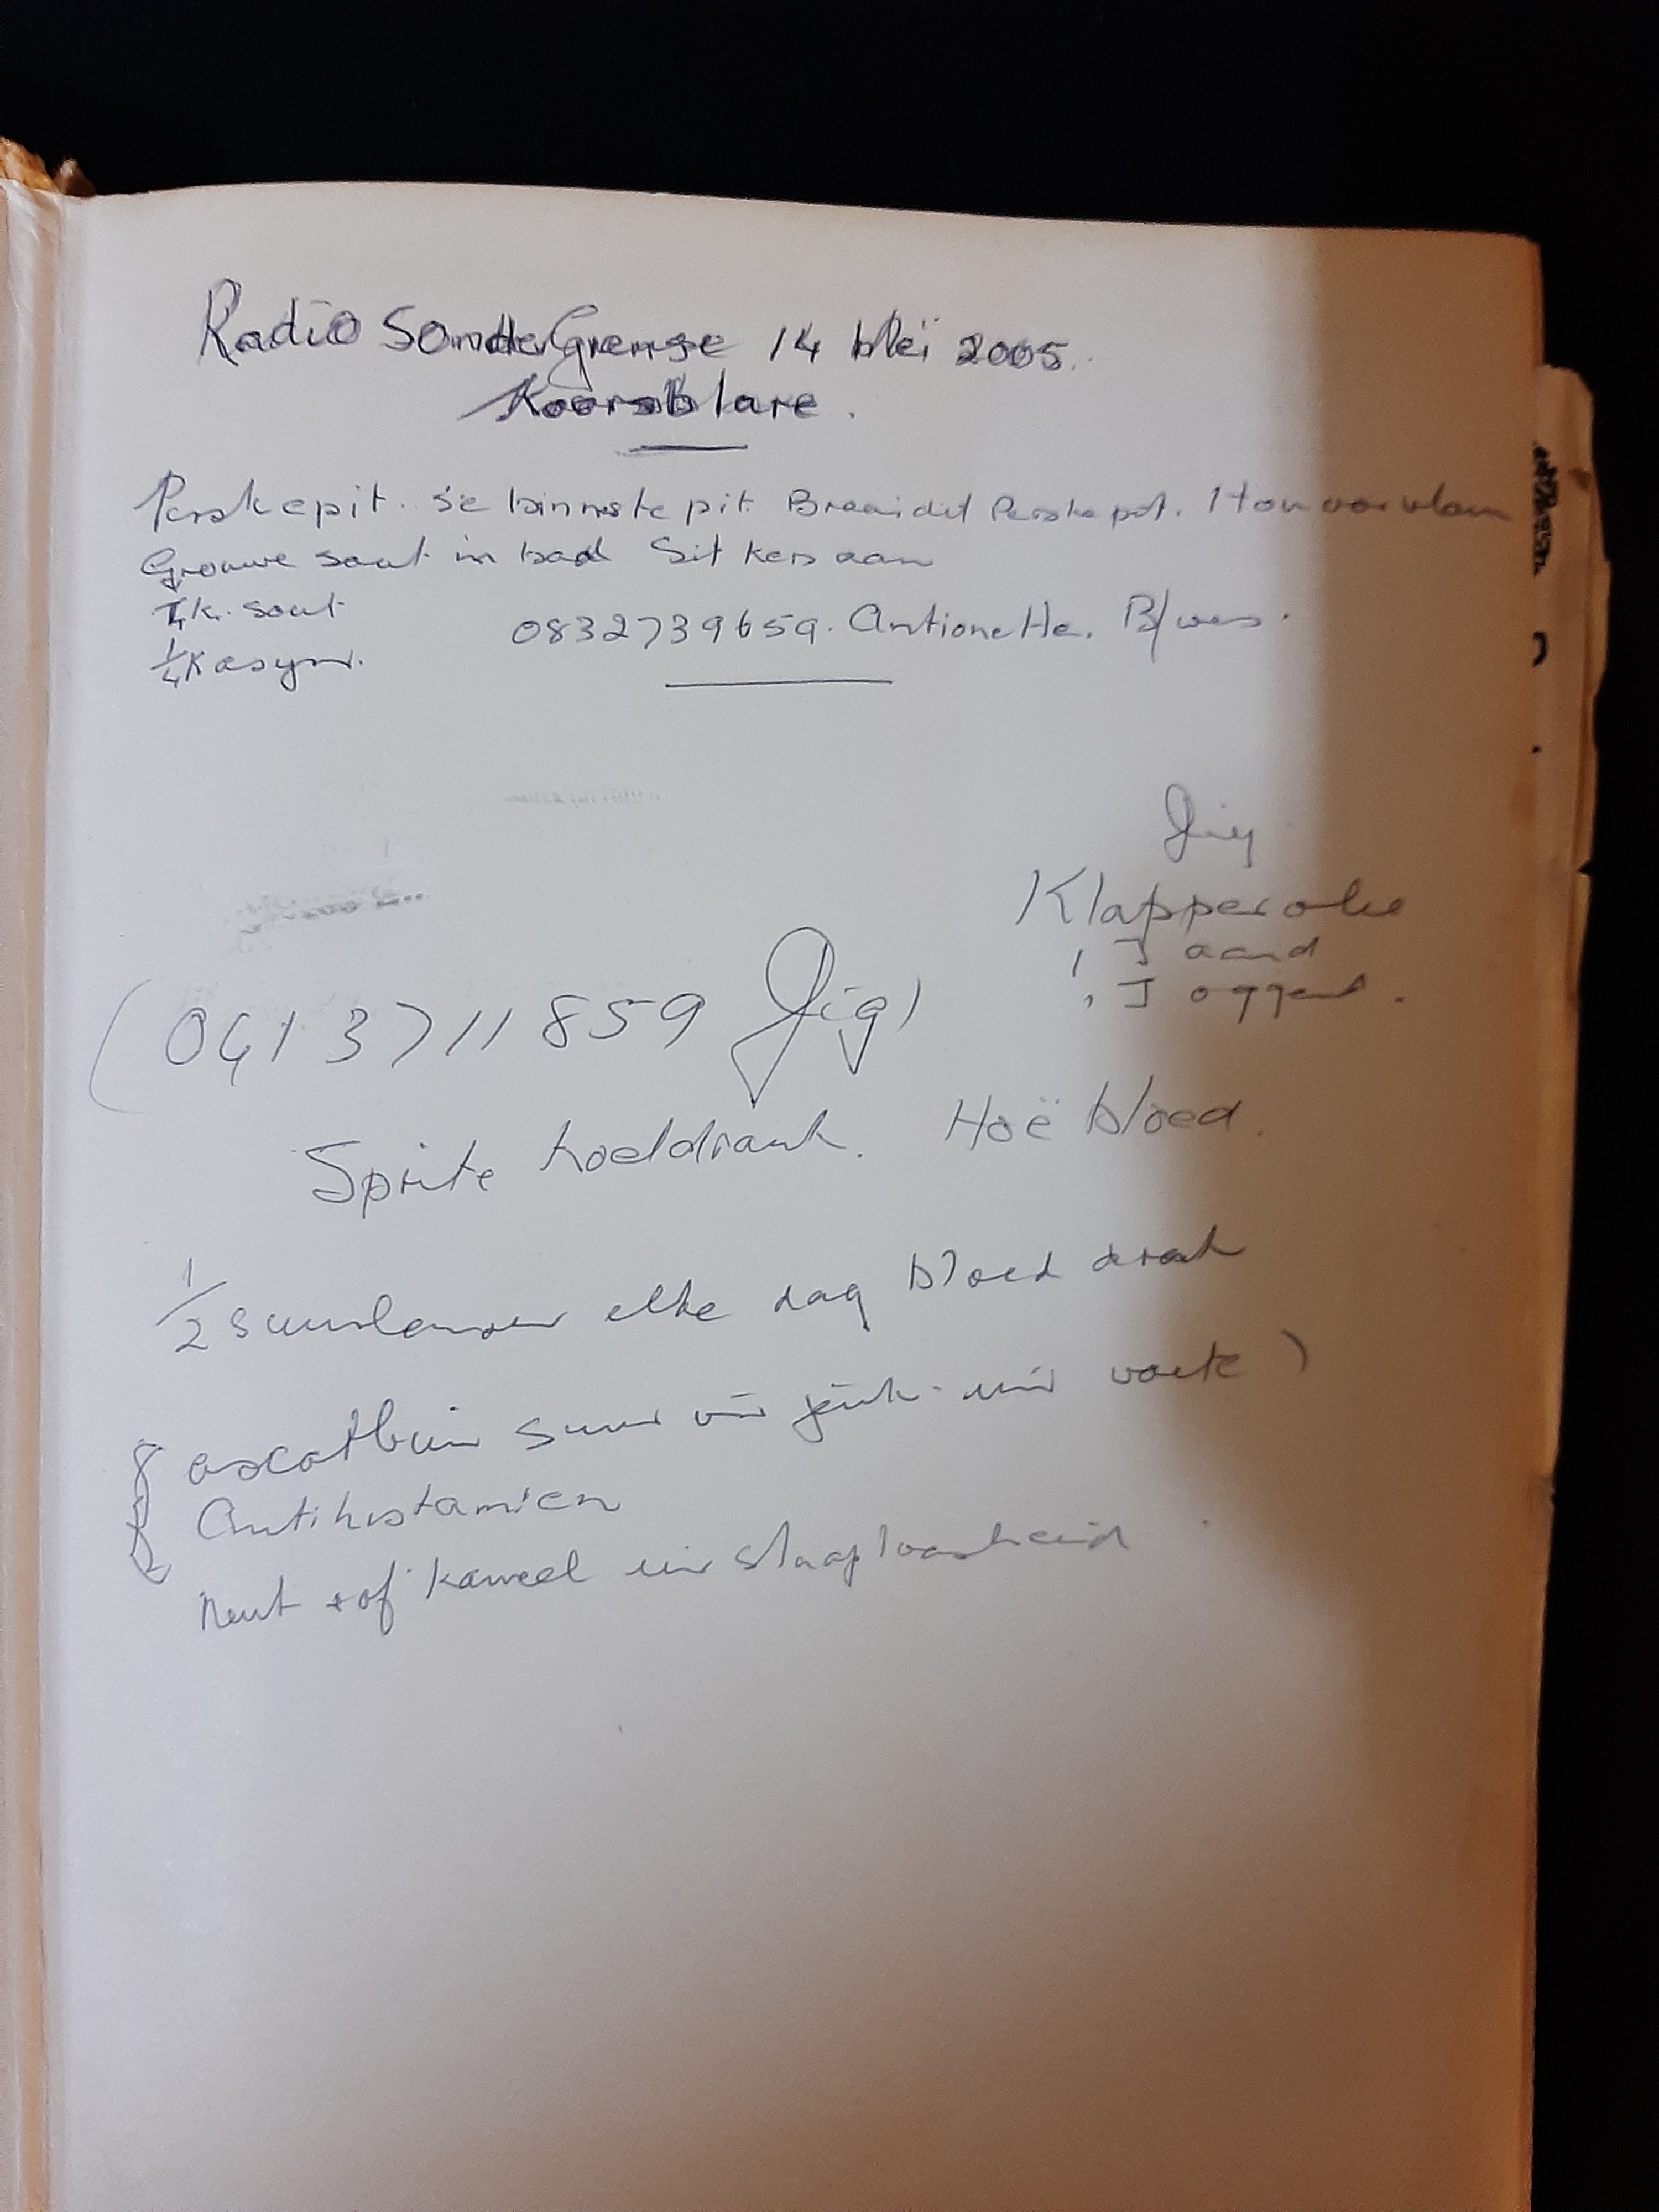 Radio Sonder Grense 14 Mei 2005.
Koorsblare.
Perskepit. se binneste pit. Braai dit Perskepit. Hou voor vlam
Growwe sout in bad Sit kers aan
¼ k. sout
¼ K asyn.
0832739659. Antionette. B/wes.
Jig
Klapperolie
1 T aand
1 T oggend.
(041 3711859 Jig)
Sprite koeldrank. Hoë bloed.
½ suurlemoen elke dag bloed druk
suur vir jeuk. vir voete)
Antihistamien
Neut + of kaneel vir slaaploosheid